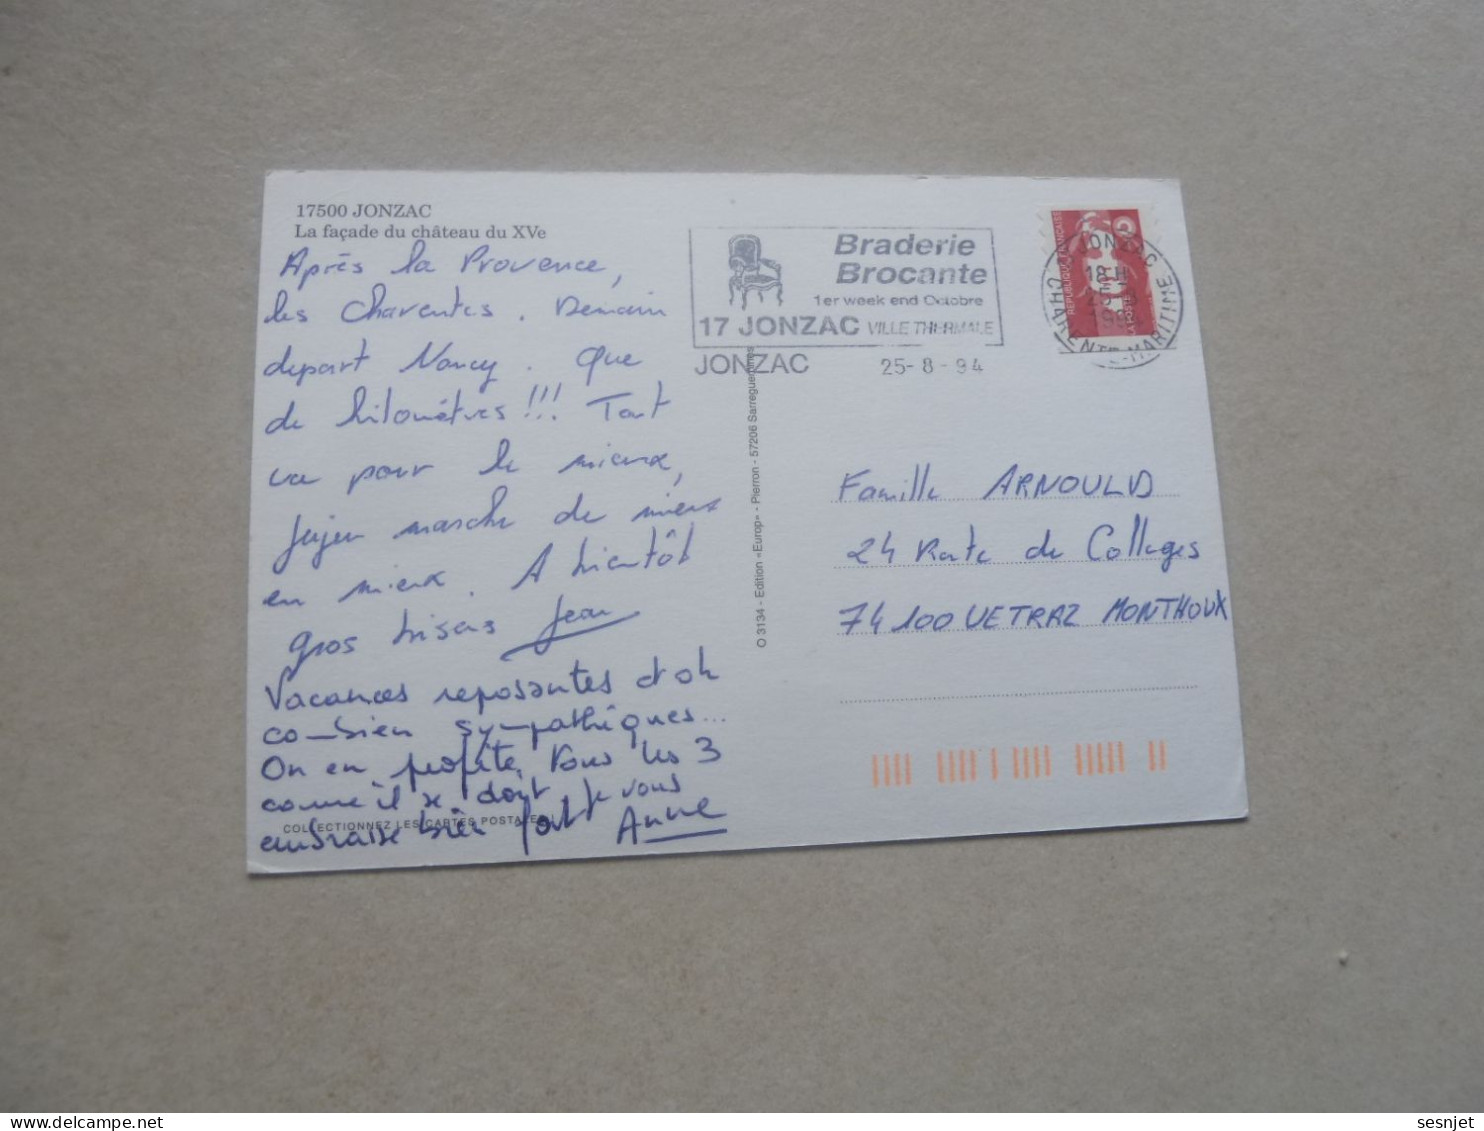 17500 JONZAC
La façade du château du XVe
Après la Provence,
les Charentes. Demain
depart Nancy. Que
de kilomètres !!! Tout
va pour le mieux,
Jujeu marche de mieux
en mieux. A bientôt
gros bisous Jean
Vacances reposantes et oh
combien sympathiques...
On en profite. Vous les 3
comme il se doit je vous
embrasse bien fort
Anne
COLLECTIONNEZ LES CARTES POSTALES
Braderie
Brocante
1er week end Octobre
17 JONZAC VILLE THERMALE
JONZAC 25-8-94
REPUBLIQUE FRANÇAISE
LA POSTE
JONZAC
18H
25-8
CHARENTE-MARITIME
O 3134 - Edition «Europ» - Pierron - 57206 Sarreguemines
Famille ARNOULD
24 Route de Collages
74100 VETRAZ MONTHOUX
sesnjet